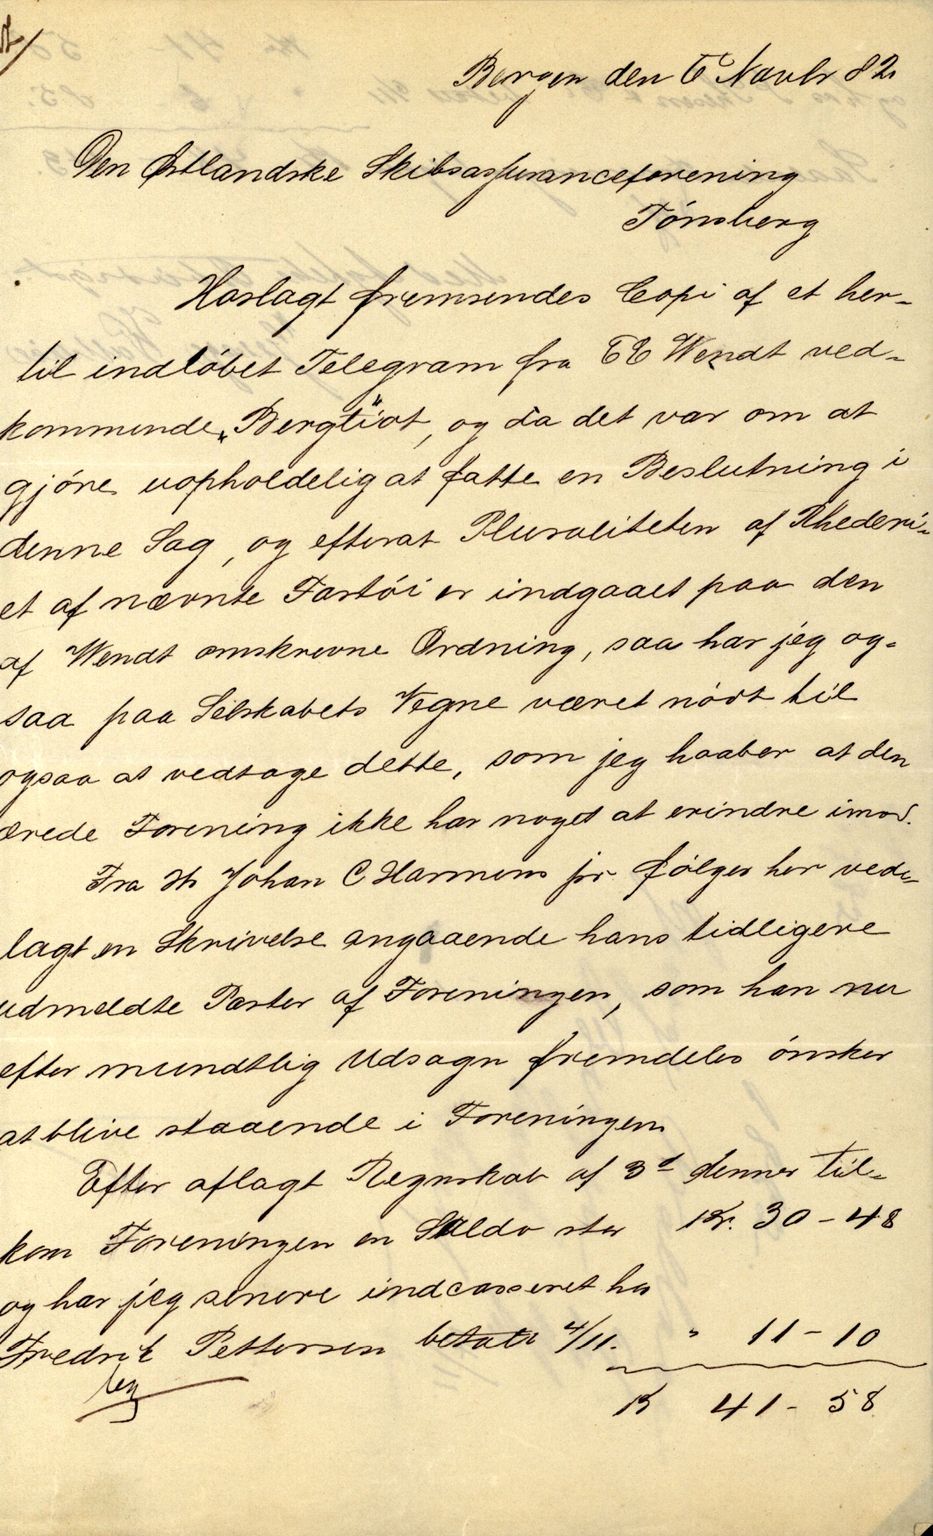 Bergen den 6 Novbr 82
Den Østlandske Skibsassuranceforening
Tönsberg
Hoslagt fremsendes Copi af et her-
til indløbet Telegram fra E E Wendt ved-
kommende „Bergliot", og da det var om at
gjöre uopholdelig at fatte en Beslutning i
denne Sag, og efterat Pluraliteten af Rhederi-
et af nævnte Fartöi er indgaaet paa den
af Wendt omskrevne Ordning, saa har jeg og-
saa paa Selskabets Vegne været nödt til
ogsaa at vedtage dette, som jeg haaber at den
ærede Forening ikke har noget at erindre imod.
Fra Hr Johan C Harmens jr. fölger her ved-
lagt en Skrivelse angaaende hans tidligere
udmeldte Parter af Foreningen, som han nu
efter mundtlig Udsagn fremdeles önsker
at blive staaende i Foreningen
Efter aflagt Regnskab af 3d dennes til-
kom Foreningen en Saldo stor Kr. 30-48
og har jeg senere indcasseret hos
Fredrik Pettersen betalt 4/11. " 11-10
Kr 41-58